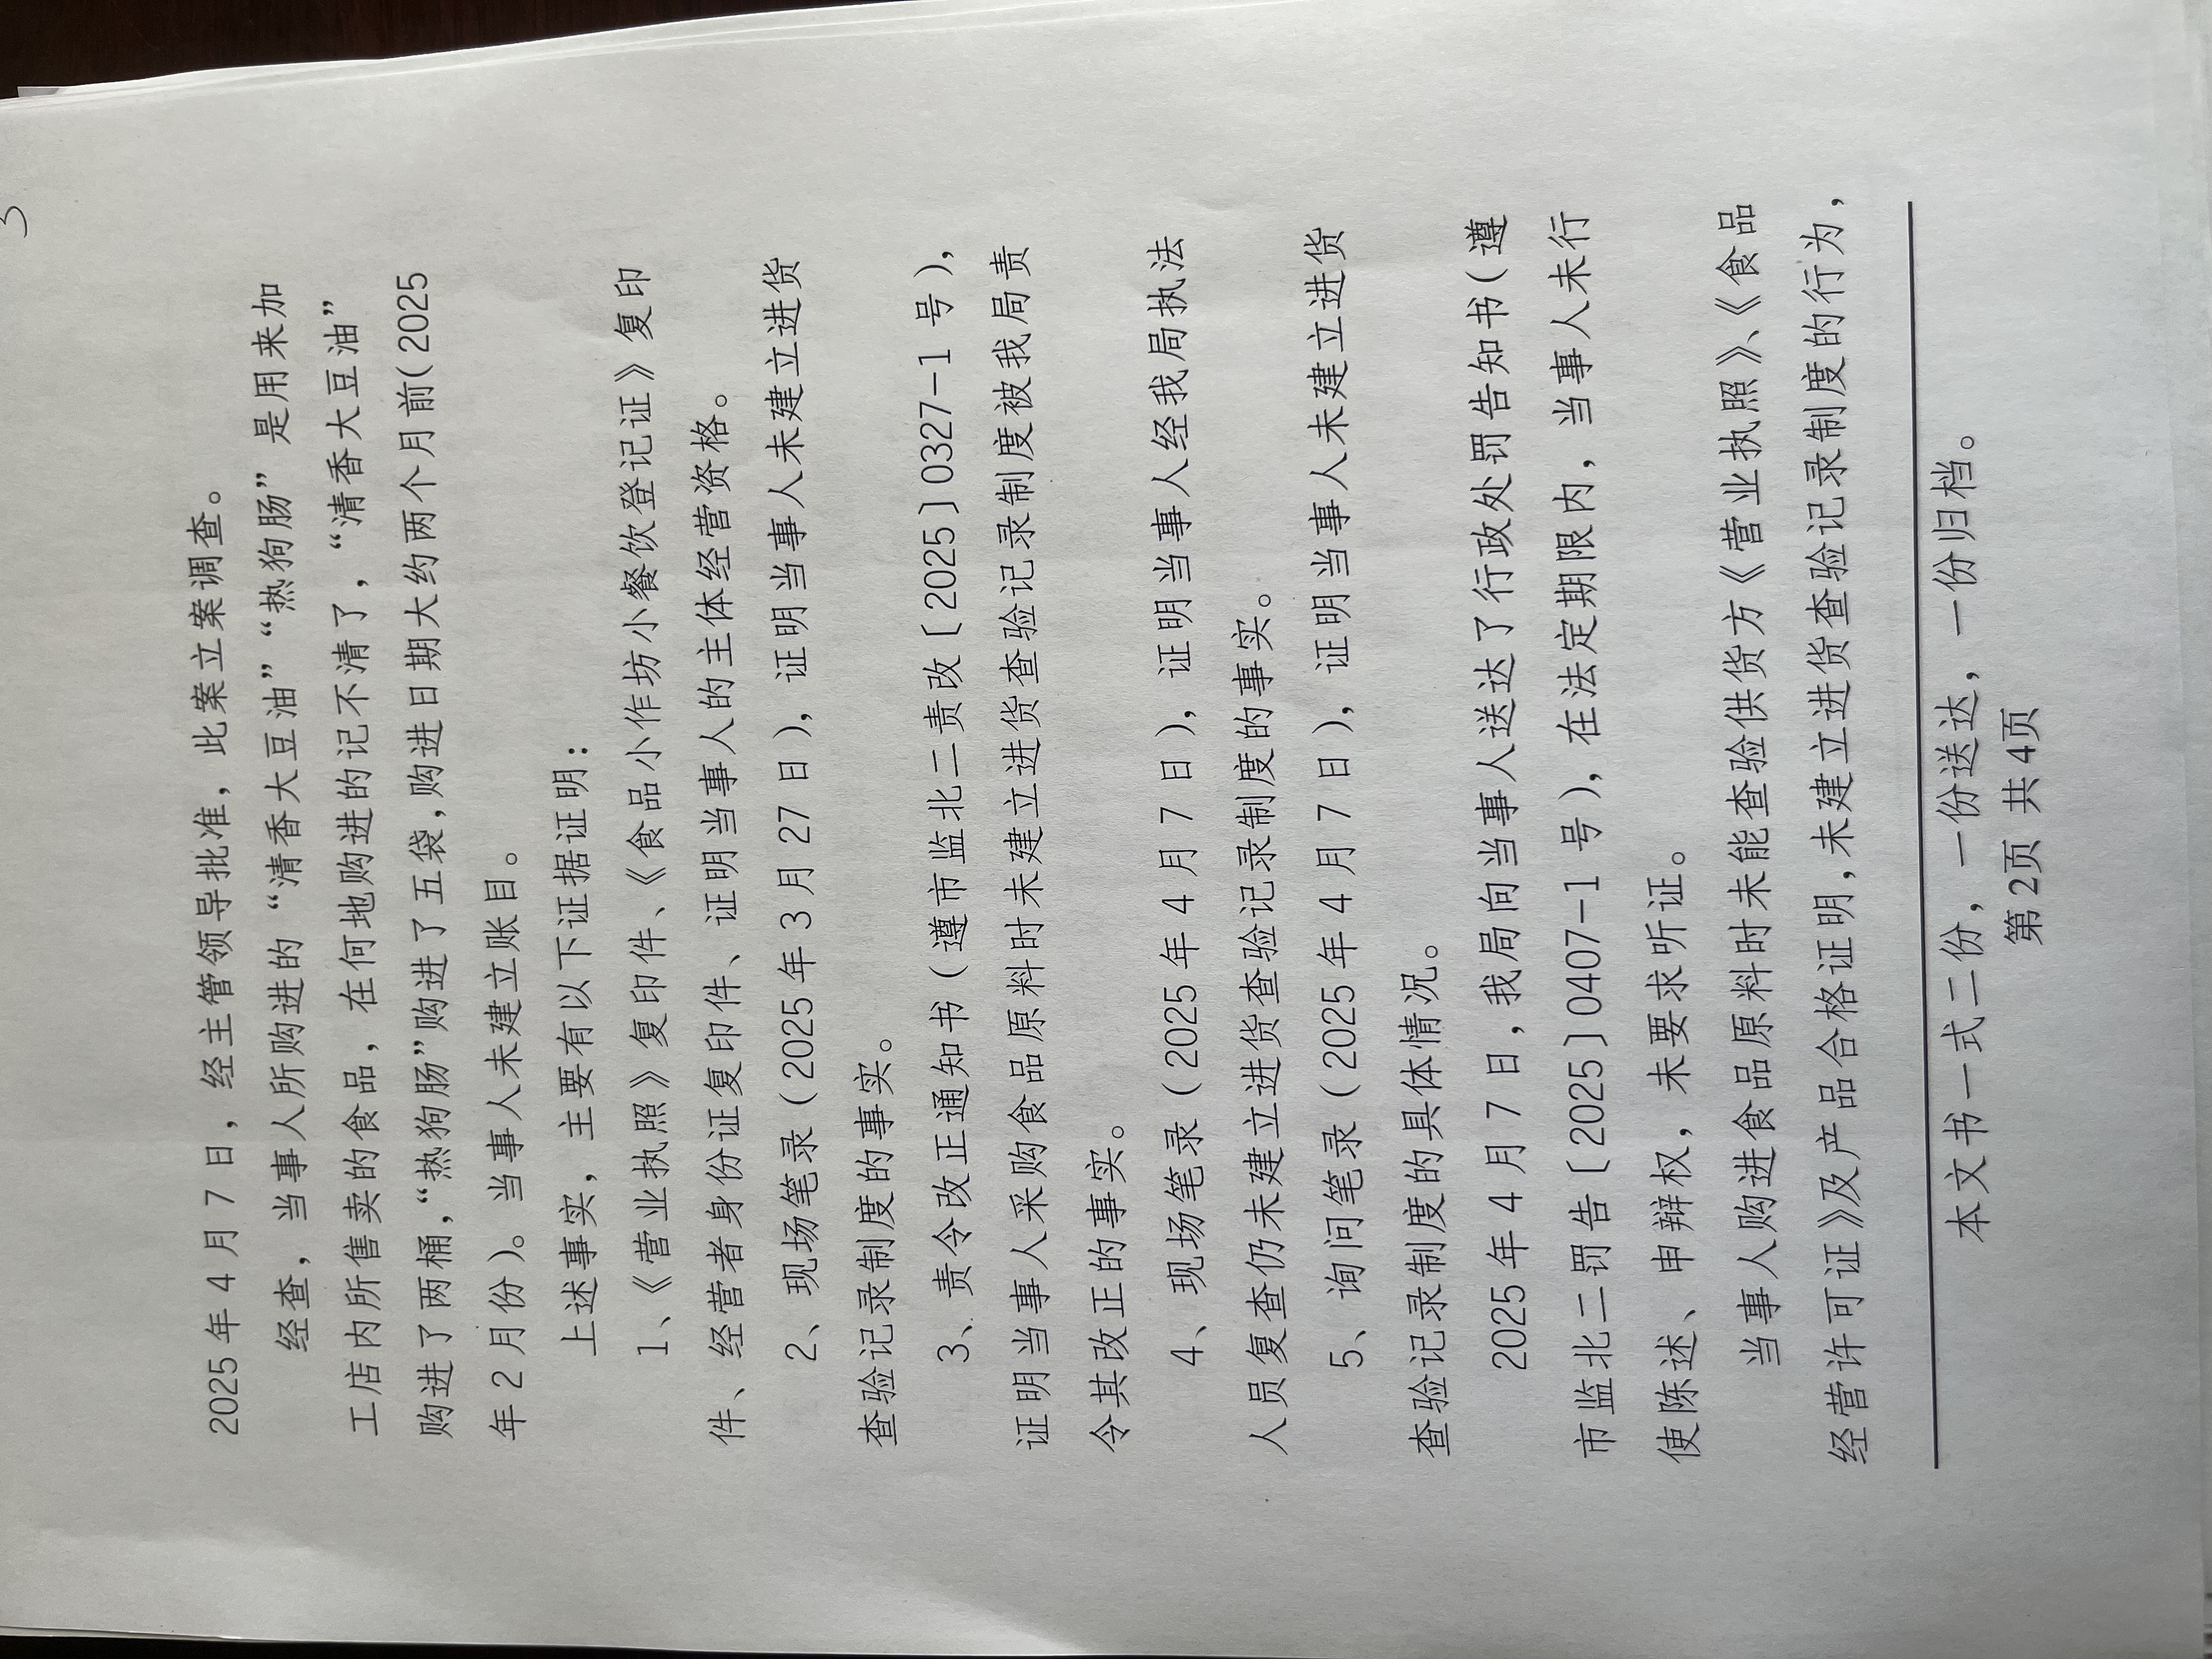 3
2025 年 4 月 7 日，经主管领导批准，此案立案调查。
经查，当事人所购进的“清香大豆油”“热狗肠”是用来加
工店内所售卖的食品，在何地购进的记不清了，“清香大豆油”
购进了两桶，“热狗肠”购进了五袋，购进日期大约两个月前（2025
年 2 月份）。当事人未建立账目。
上述事实，主要有以下证据证明：
1、《营业执照》复印件、《食品小作坊小餐饮登记证》复印
件、经营者身份证复印件、证明当事人的主体经营资格。
2、现场笔录（2025 年 3 月 27 日），证明当事人未建立进货
查验记录制度的事实。
3、责令改正通知书（遵市监北二责改〔2025〕0327-1 号），
证明当事人采购食品原料时未建立进货查验记录制度被我局责
令其改正的事实。
4、现场笔录（2025 年 4 月 7 日），证明当事人经我局执法
人员复查仍未建立进货查验记录制度的事实。
5、询问笔录（2025 年 4 月 7 日），证明当事人未建立进货
查验记录制度的具体情况。
2025 年 4 月 7 日，我局向当事人送达了行政处罚告知书（遵
市监北二罚告〔2025〕0407-1 号），在法定期限内，当事人未行
使陈述、申辩权，未要求听证。
当事人购进食品原料时未能查验供货方《营业执照》、《食品
经营许可证》及产品合格证明，未建立进货查验记录制度的行为，
本文书一式二份，一份送达，一份归档。
第 2页 共 4页